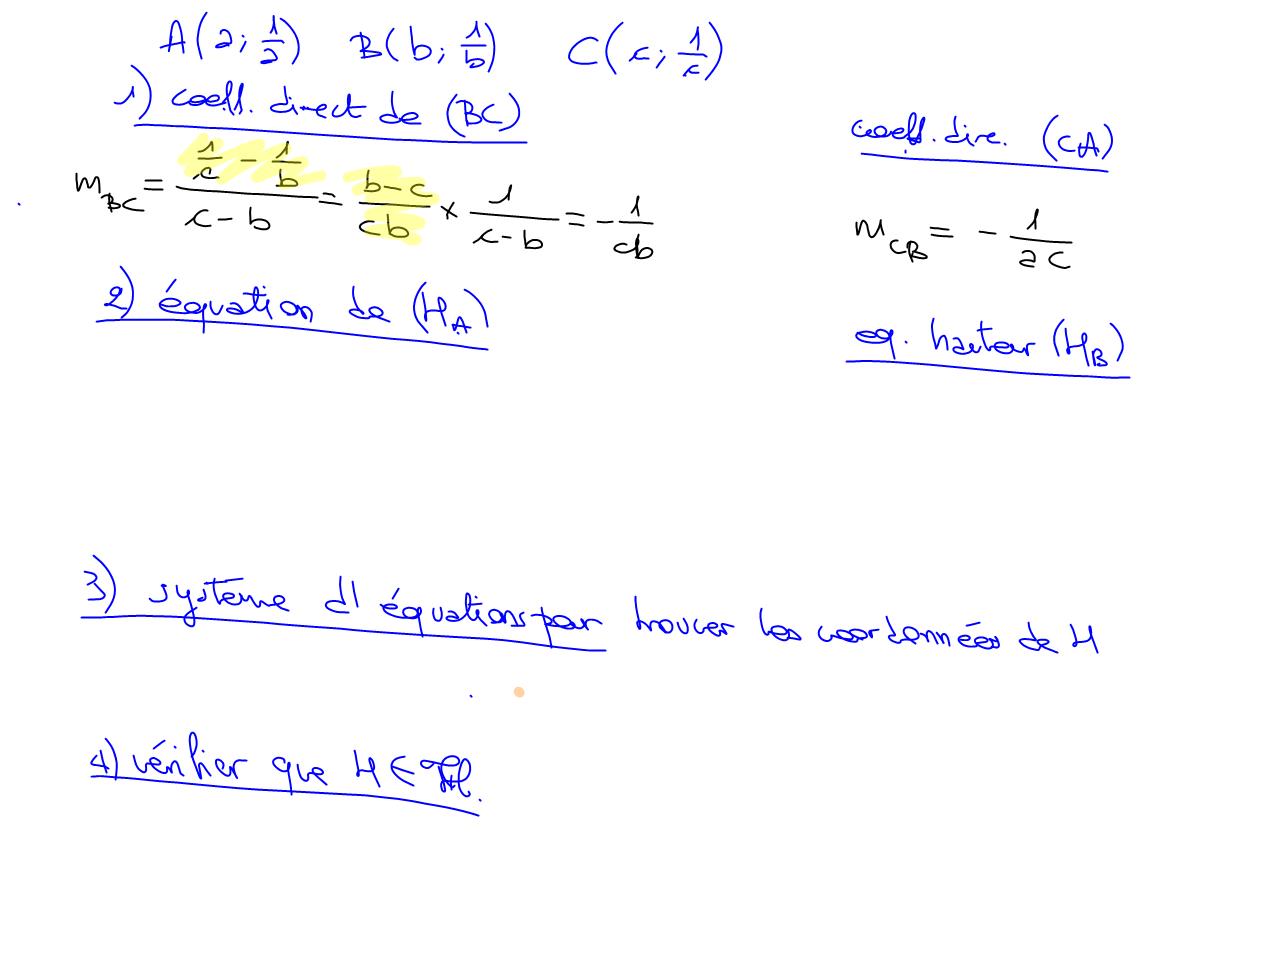 A(a; 1/a) B(b; 1/b) C(c; 1/c)
1) coeff. direct de (BC)
m_BC = (1/c - 1/b)/(c - b) = (b - c)/(cb) × 1/(c - b) = - 1/(cb)
coeff. dire. (CA)
m_CB = - 1/(ac)
2) équation de (H_A)
eq. hauteur (H_B)
3) système d'équations pour trouver les coordonnées de H
4) vérifier que H ∈ ℋ.